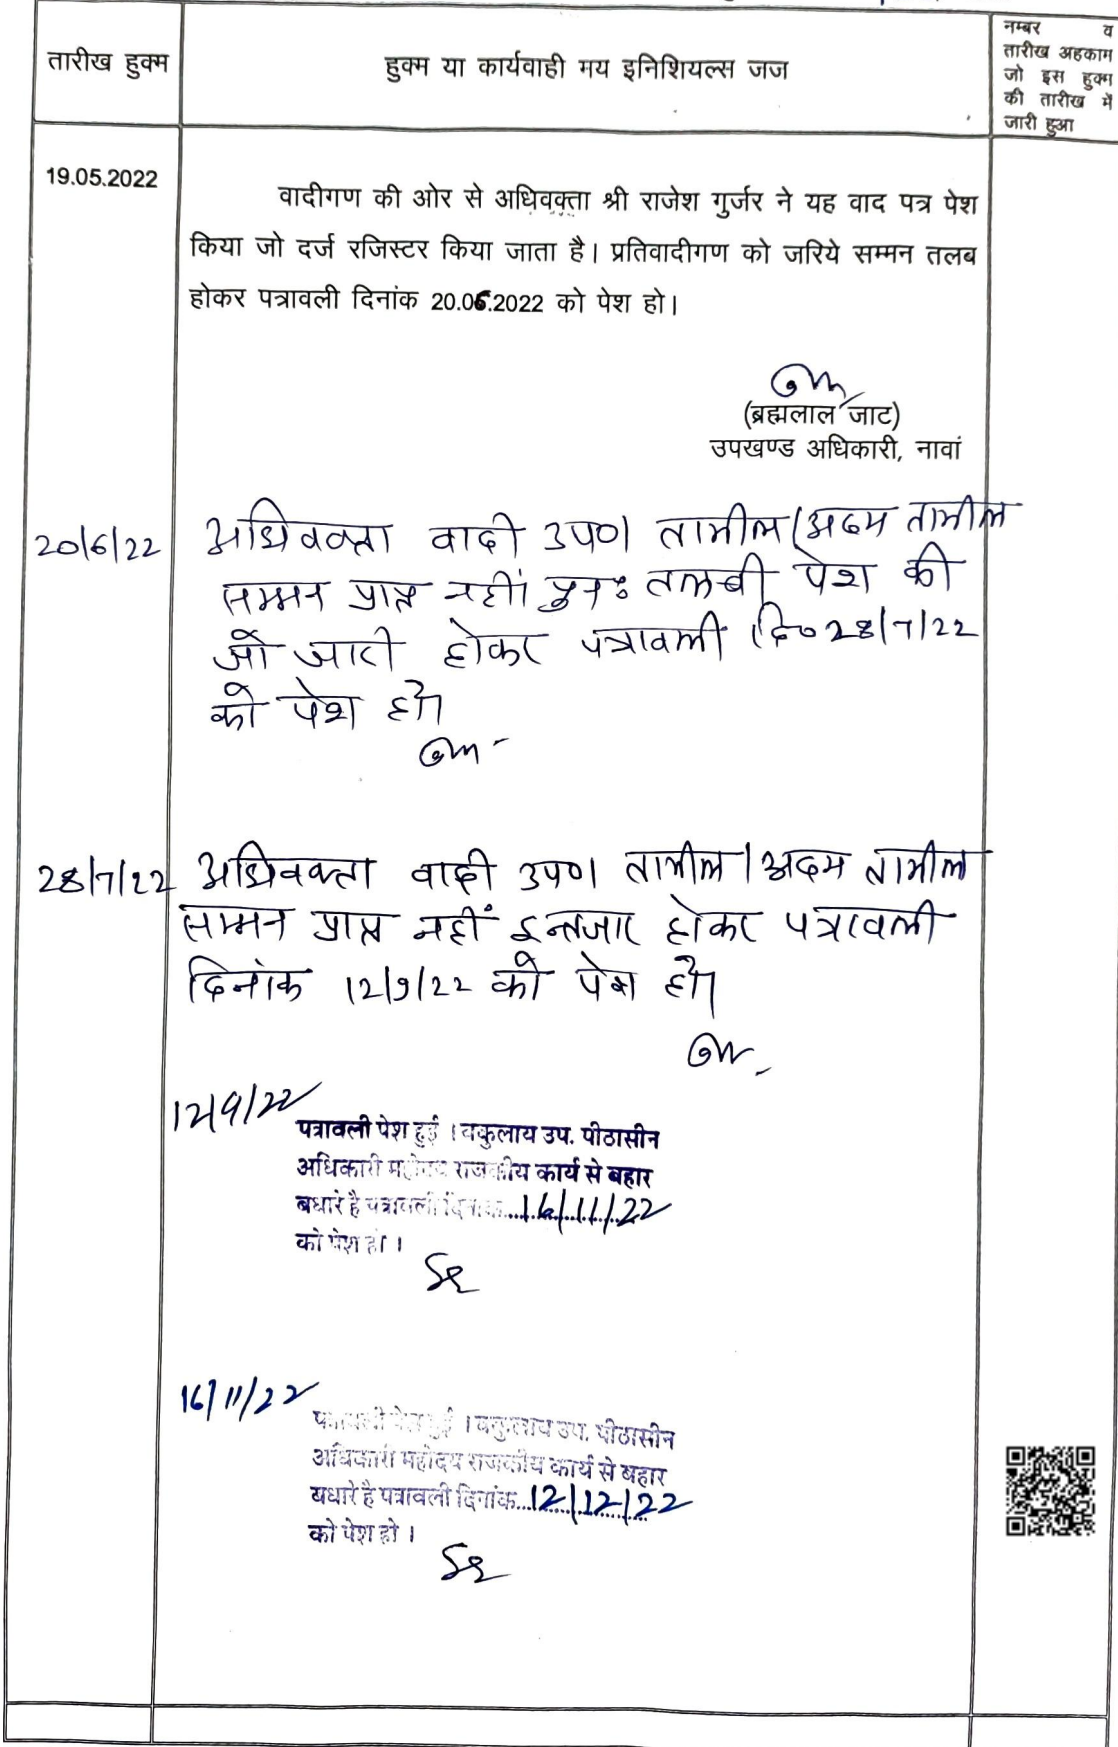 तारीख हुक्म
हुक्म या कार्यवाही मय इनिशियल्स जज
नम्बर व
तारीख अहकाम
जो इस हुक्म
की तारीख में
जारी हुआ
19.05.2022
वादीगण की ओर से अधिवक्ता श्री राजेश गुर्जर ने यह वाद पत्र पेश
किया जो दर्ज रजिस्टर किया जाता है। प्रतिवादीगण को जरिये सम्मन तलब
होकर पत्रावली दिनांक 20.06.2022 को पेश हो।
(ब्रह्मलाल जाट)
उपखण्ड अधिकारी, नावां
20/6/22
अधिवक्ता वादी उप0। तामील/अदम तामील
सम्मन प्राप्त नहीं। पुनः तलबी पेश की
जो जारी होकर पत्रावली दि० 28/7/22
को पेश हो।
28/7/22
अधिवक्ता वादी उप0। तामील/अदम तामील
सम्मन प्राप्त नहीं इन्तजार होकर पत्रावली
दिनांक 12/9/22 को पेश हो।
12/9/22
पत्रावली पेश हुई । वकुलाय उप. पीठासीन
अधिकारी महोदय राजकीय कार्य से बहार
पधारे है पत्रावली दिनांक...16/11/22
को पेश हो ।
16/11/22
पत्रावली पेश हुई । वकुलाय उप. पीठासीन
अधिकारी महोदय राजकीय कार्य से बहार
पधारे है पत्रावली दिनांक...12/12/22
को पेश हो ।